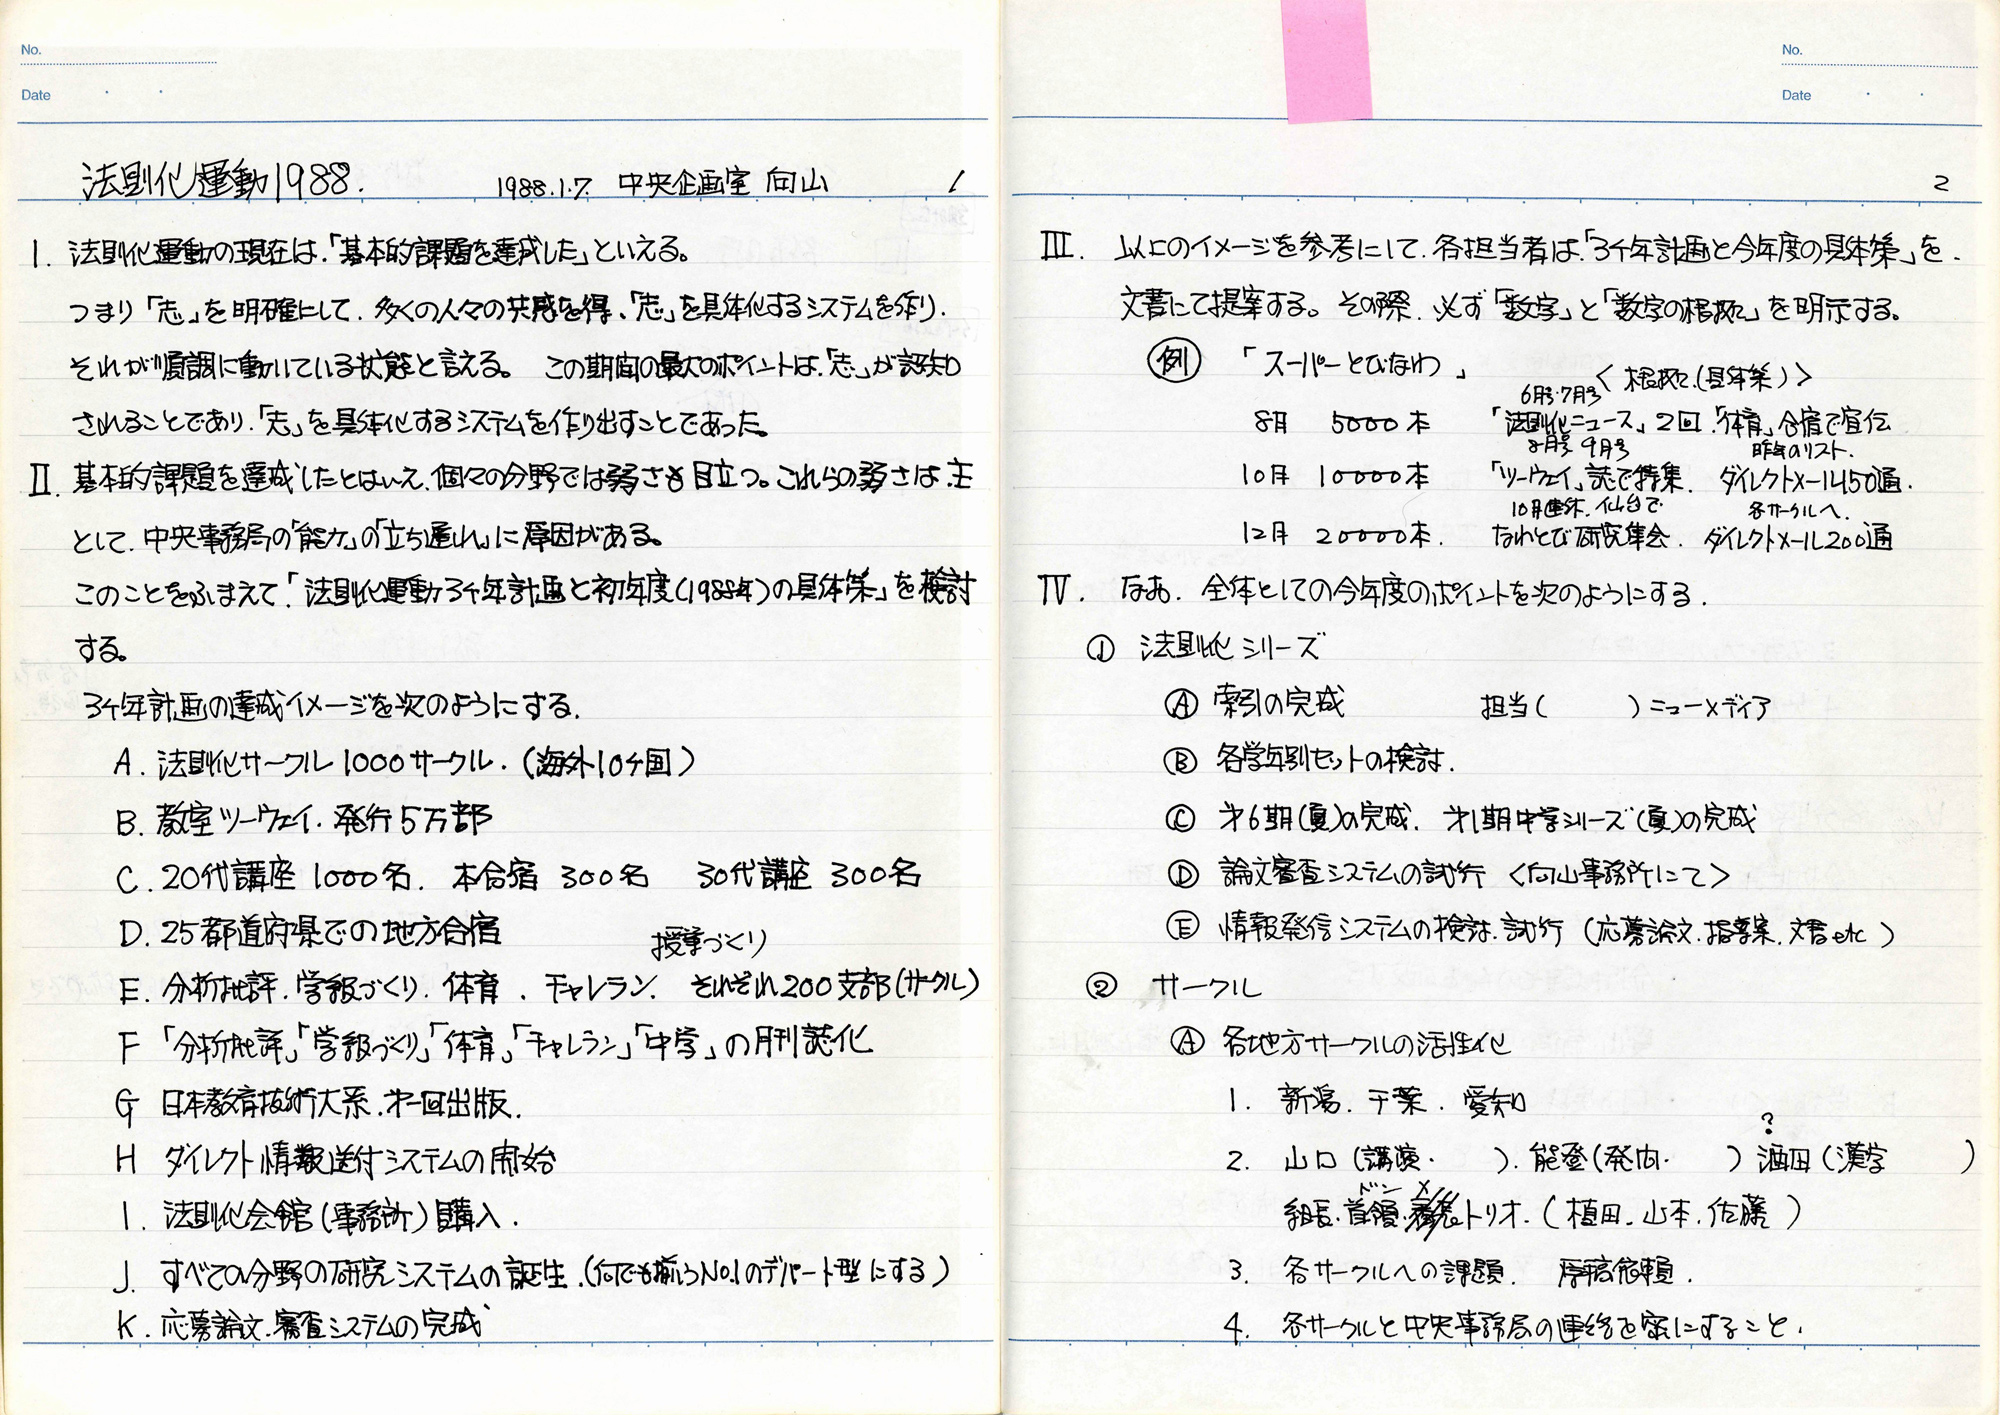 No.
Date
法則化運動1988.　1988.1.7. 中央企画室 向山　1
I. 法則化運動の現在は、「基本的課題を達成した」といえる。
つまり「志」を明確にして、多くの人々の共感を得、「志」を具体化するシステムを作り、
それが順調に動いている状態と言える。この期間の最大のポイントは、「志」が認知
されることであり、「志」を具体化するシステムを作り出すことであった。
II. 基本的課題を達成したとはいえ、個々の分野では弱さも目立つ。これらの弱さは、主
として、中央事務局の「能力」の「立ち遅れ」に原因がある。
このことをふまえて「法則化運動3ヶ年計画と初年度(1988年)の具体策」を検討
する。
3ヶ年計画の達成イメージを次のようにする.
A. 法則化サークル1000サークル.(海外10ヶ国)
B. 教室ツーウェイ. 発行5万部
C. 20代講座 1000名. 本合宿 300名 30代講座 300名
D. 25都道府県での地方合宿
授業づくり
E. 分析批評. 学級づくり. 体育. チャレラン. それぞれ200支部(サークル)
F 「分析批評」「学級づくり」「体育」「チャレラン」「中学」の月刊誌化
G 日本教育技術大系. 才一回出版.
H ダイレクト情報送付システムの開始
I. 法則化会館(事務所)購入.
J. すべての分野の研究システムの誕生.(何でも揃うNo.1のデパート型にする)
K. 応募論文. 審査システムの完成
No.
Date
2
III. 以上のイメージを参考にして、各担当者は、「3ヶ年計画と今年度の具体策」を、
文書にて提案する。その際、必ず「数字」と「数字の根拠」を明示する。
例 「スーパーとびなわ」
<根拠.(具体策)>
6月号・7月号
8月 5000本 「法則化ニュース」2回.「体育」合宿で宣伝
8月号 9月号 昨年のリスト.
10月 10000本 「ツーウェイ」誌で特集. ダイレクトメール150通.
10月連休. 仙台で 各サークルへ.
12月 20000本. なわとび研究集会. ダイレクトメール200通
IV. なお. 全体としての今年度のポイントを次のようにする.
① 法則化シリーズ
Ⓐ 索引の完成 担当( )ニューメディア
Ⓑ 各学年別セットの検討.
Ⓒ 才6期(夏)の完成. 才1期中学シリーズ(夏)の完成
Ⓓ 論文審査システムの試行 <向山事務所にて>
Ⓔ 情報発信システムの検討. 試行 (応募論文. 指導案. 文書etc)
② サークル
Ⓐ 各地方サークルの活性化
1. 新潟. 千葉. 愛知
?
2. 山口(講演. ). 能登(発向. ) 酒田(漢字 )
ドン
組長. 首領. トリオ.(植田. 山本. 佐藤)
3. 各サークルへの課題. 原稿依頼.
4. 各サークルと中央事務局の連絡を密にすること.